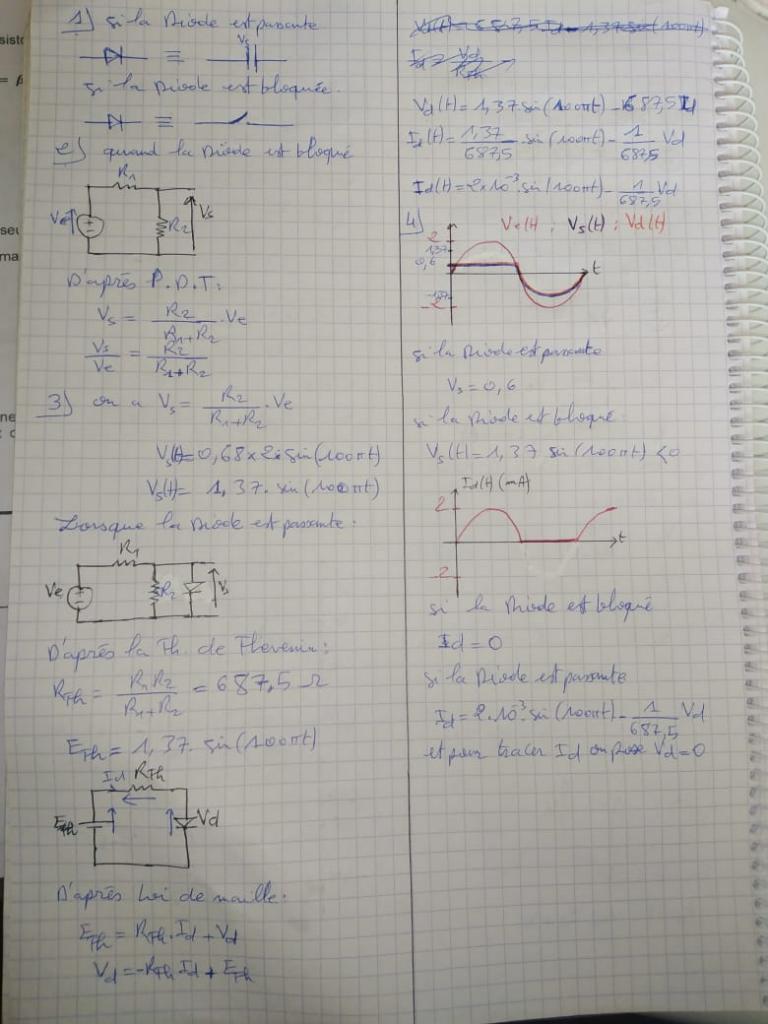 1) si la Diode est passante
Vs
≡
si la Diode est bloquée.
≡
2) quand la Diode est bloqué
R1
Ve
R2
Vs
D'après P.D.T:
Vs = R2/(R1+R2) . Ve
Vs/Ve = R2/(R1+R2)
3) on a Vs = R2/(R1+R2) . Ve
Vs(t)= 0,68 x 2 sin(100πt)
Vs(t)= 1,37. sin(100πt)
Lorsque la Diode est passante:
R1
Ve
R2
Vs
D'après la Th. de Thevenin:
RTh = R1R2/(R1+R2) = 687,5 Ω
ETh = 1,37. sin(100πt)
Id RTh
ETh
Vd
D'après Loi de maille:
ETh = RTh. Id + Vd
Vd = -RTh Id + ETh
Vd(t) = 1,37 sin(100πt) - 687,5 Id
Id(t) = 1,37/687,5 . sin(100πt) - 1/687,5 Vd
Id(t) = 2x10⁻³. sin(100πt) - 1/687,5 Vd
4) Ve(t) , Vs(t) ; Vd(t)
2
1,37
0,6
t
-1,37
-2
si la Diode est passante
Vs = 0,6
si la Diode est bloqué:
Vs(t) = 1,37 sin(100πt) <0
Id(t) (mA)
2
t
-2
si la Diode est bloqué
Id = 0
si la Diode est passante
Id = 2.10⁻³. sin(100πt) - 1/687,5 Vd
et pour tracer Id on pose Vd = 0